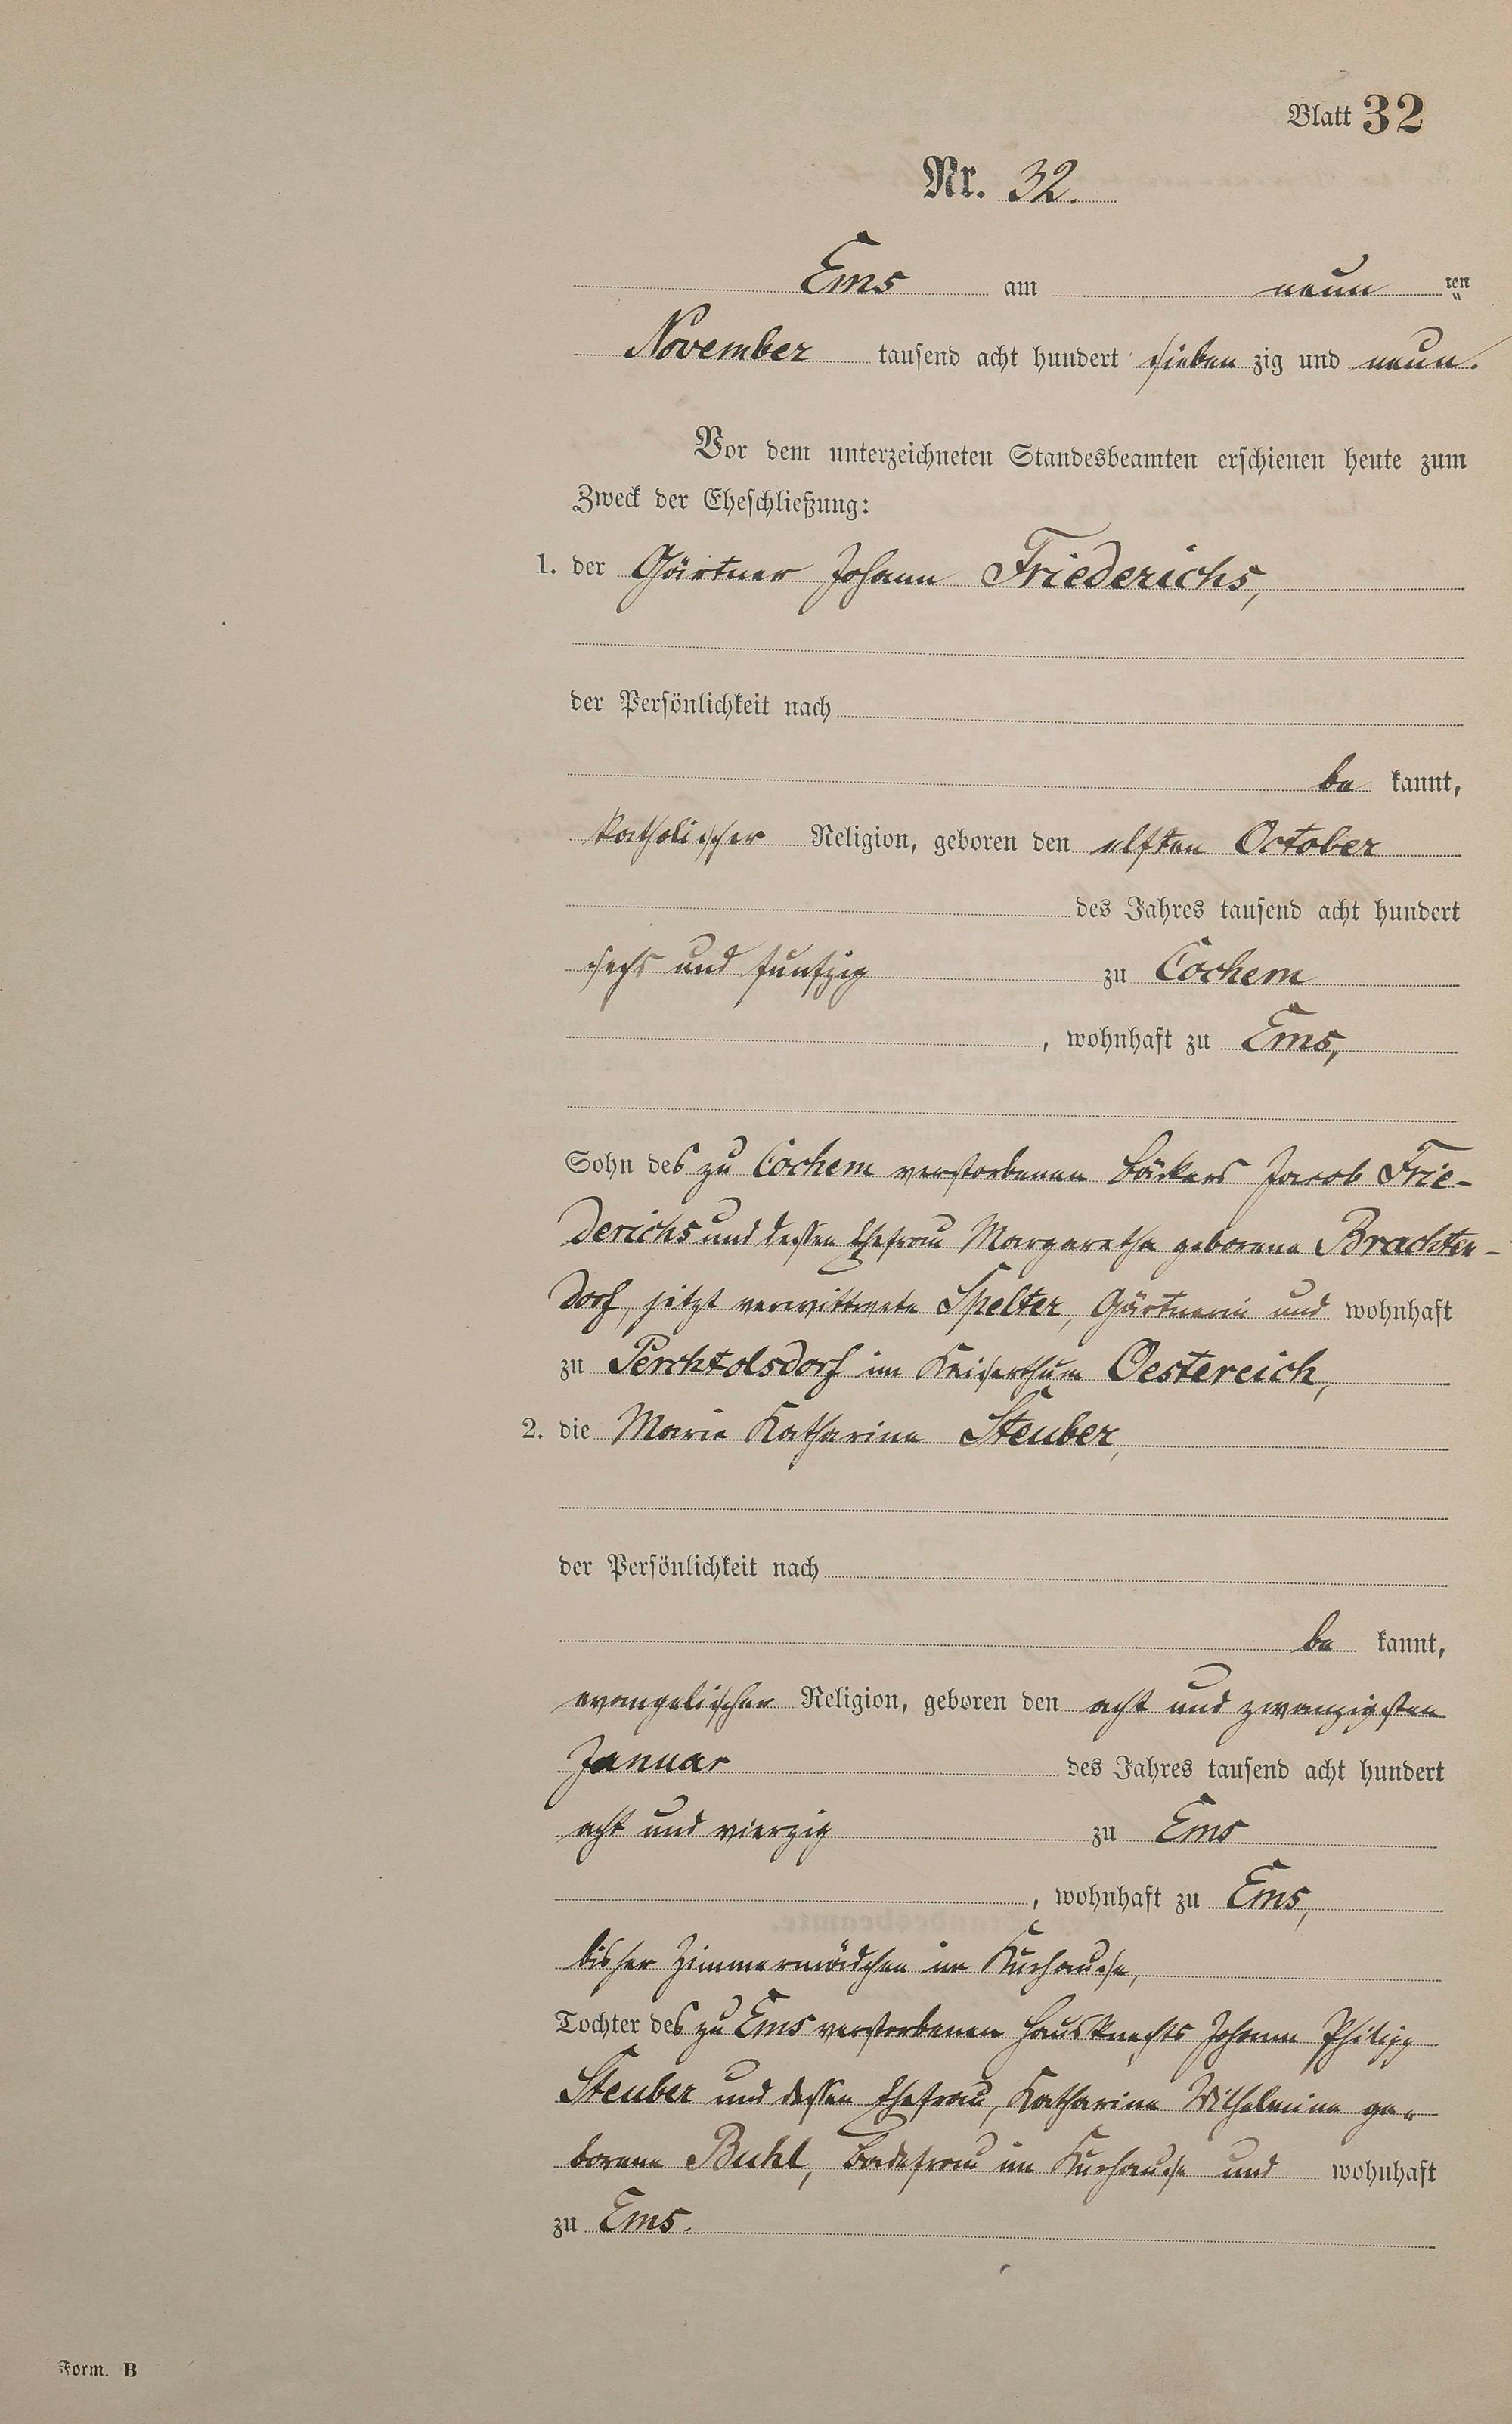 Blatt 32
Nr. 32.
Ems am neun ten
November tausend acht hundert sieben zig und neun.
Vor dem unterzeichneten Standesbeamten erschienen heute zum
Zweck der Eheschließung:
1. der Gärtner Johann Friederichs,
der Persönlichkeit nach
be kannt,
katholischer Religion, geboren den elften October
des Jahres tausend acht hundert
sechs und funfzig zu Cochem
, wohnhaft zu Ems,
Sohn des zu Cochem verstorbenen Bäckers Jacob Frie-
derichs und dessen Ehefrau Margaretha geborene Brachten-
dorf, jetzt verwittwete Spelter, Gärtnerin und wohnhaft
zu Perchtolsdorf im Kaiserthum Oestereich,
2. die Marie Katharina Steuber,
der Persönlichkeit nach
be kannt,
evangelischer Religion, geboren den acht und zwanzigsten
Januar des Jahres tausend acht hundert
acht und vierzig zu Ems
, wohnhaft zu Ems,
bisher Zimmermädchen im Kurhause,
Tochter des zu Ems verstorbenen Hausknechts Johann Philipp
Steuber und dessen Ehefrau, Katharina Wilhelmine ge-
borene Buhl, Badefrau im Kurhause und wohnhaft
zu Ems.
Form. B